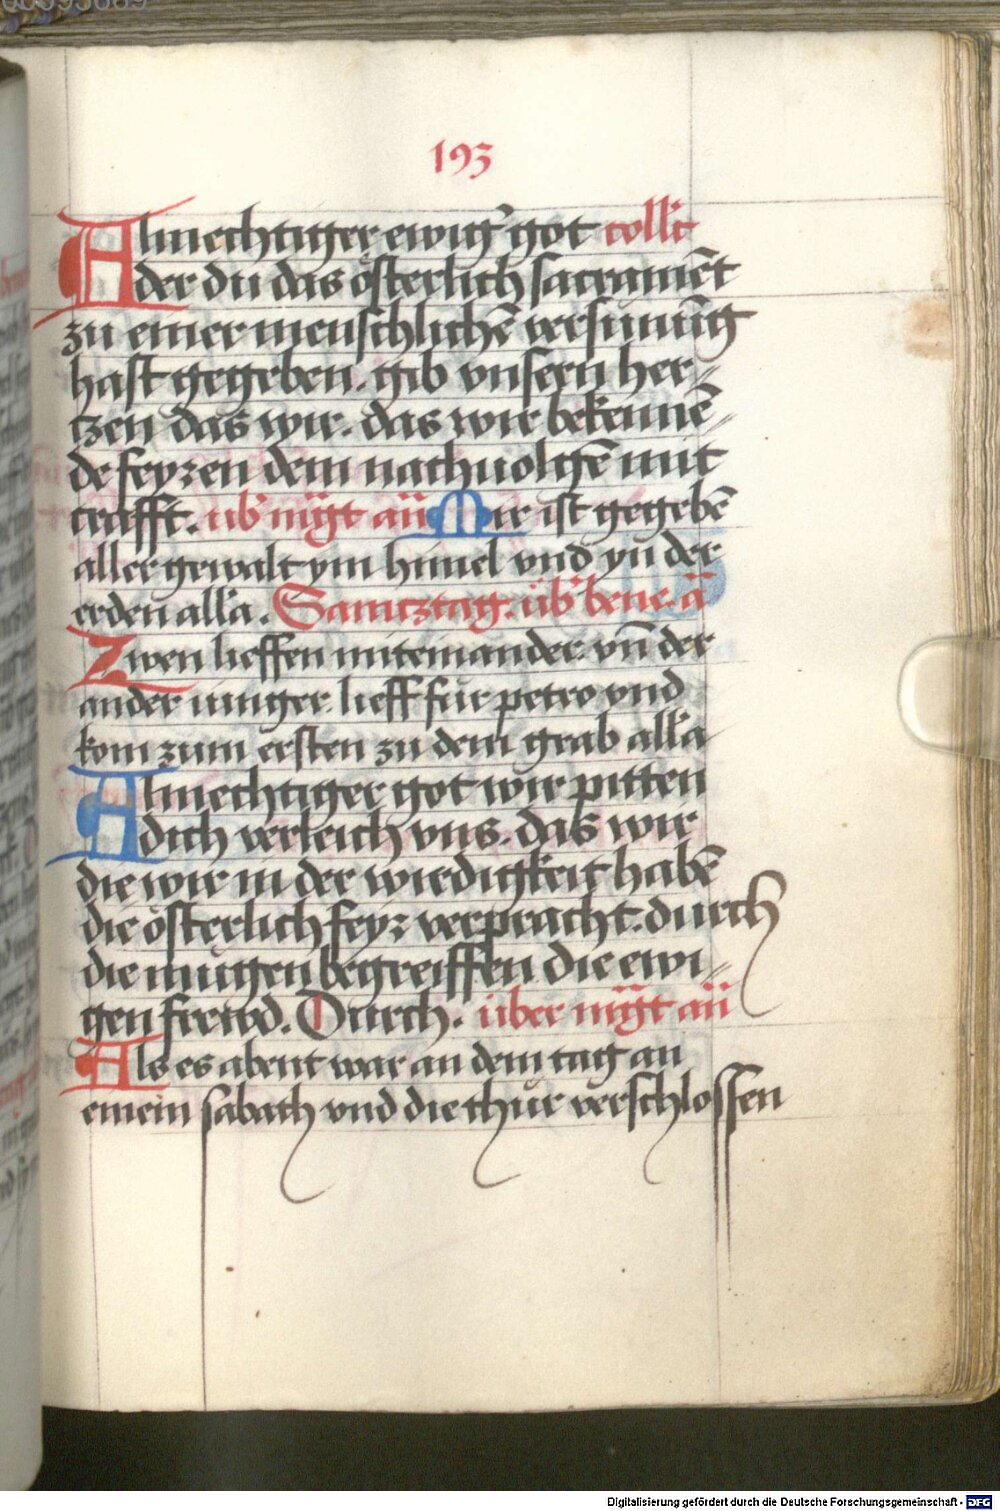 193
Almechtiger ewig' got coll't
der du das österlich sacramēt
zu einer menschlichē versünūg
hast gegeben. gib vnsern her⸗
tzen das wir. das wir bekennē⸗
de feyren dem nachuolgē mit
crafft. üb' mgt añ Mir ist gegebē
aller gewalt ym himel vnd yn der
erden all'a. Samtztag. üb' bene. a
Zwen lieffen miteinander. vn̄ der
ander iunger. lieff für petro vnd
kom zum ersten zu dem grab all'a
Almechtiger got wir pitten
dich verleich vns. das wir
die wir in der wirdigkeit habē
die österlich feyr verpracht. durch
die mügen begreiffen die ewi⸗
gen frewd. Durch. über mgt añ
Als es abent war an dem tag an
einem sabath vnd die thür verschlossen
Digitalisierung gefördert durch die Deutsche Forschungsgemeinschaft - DFG